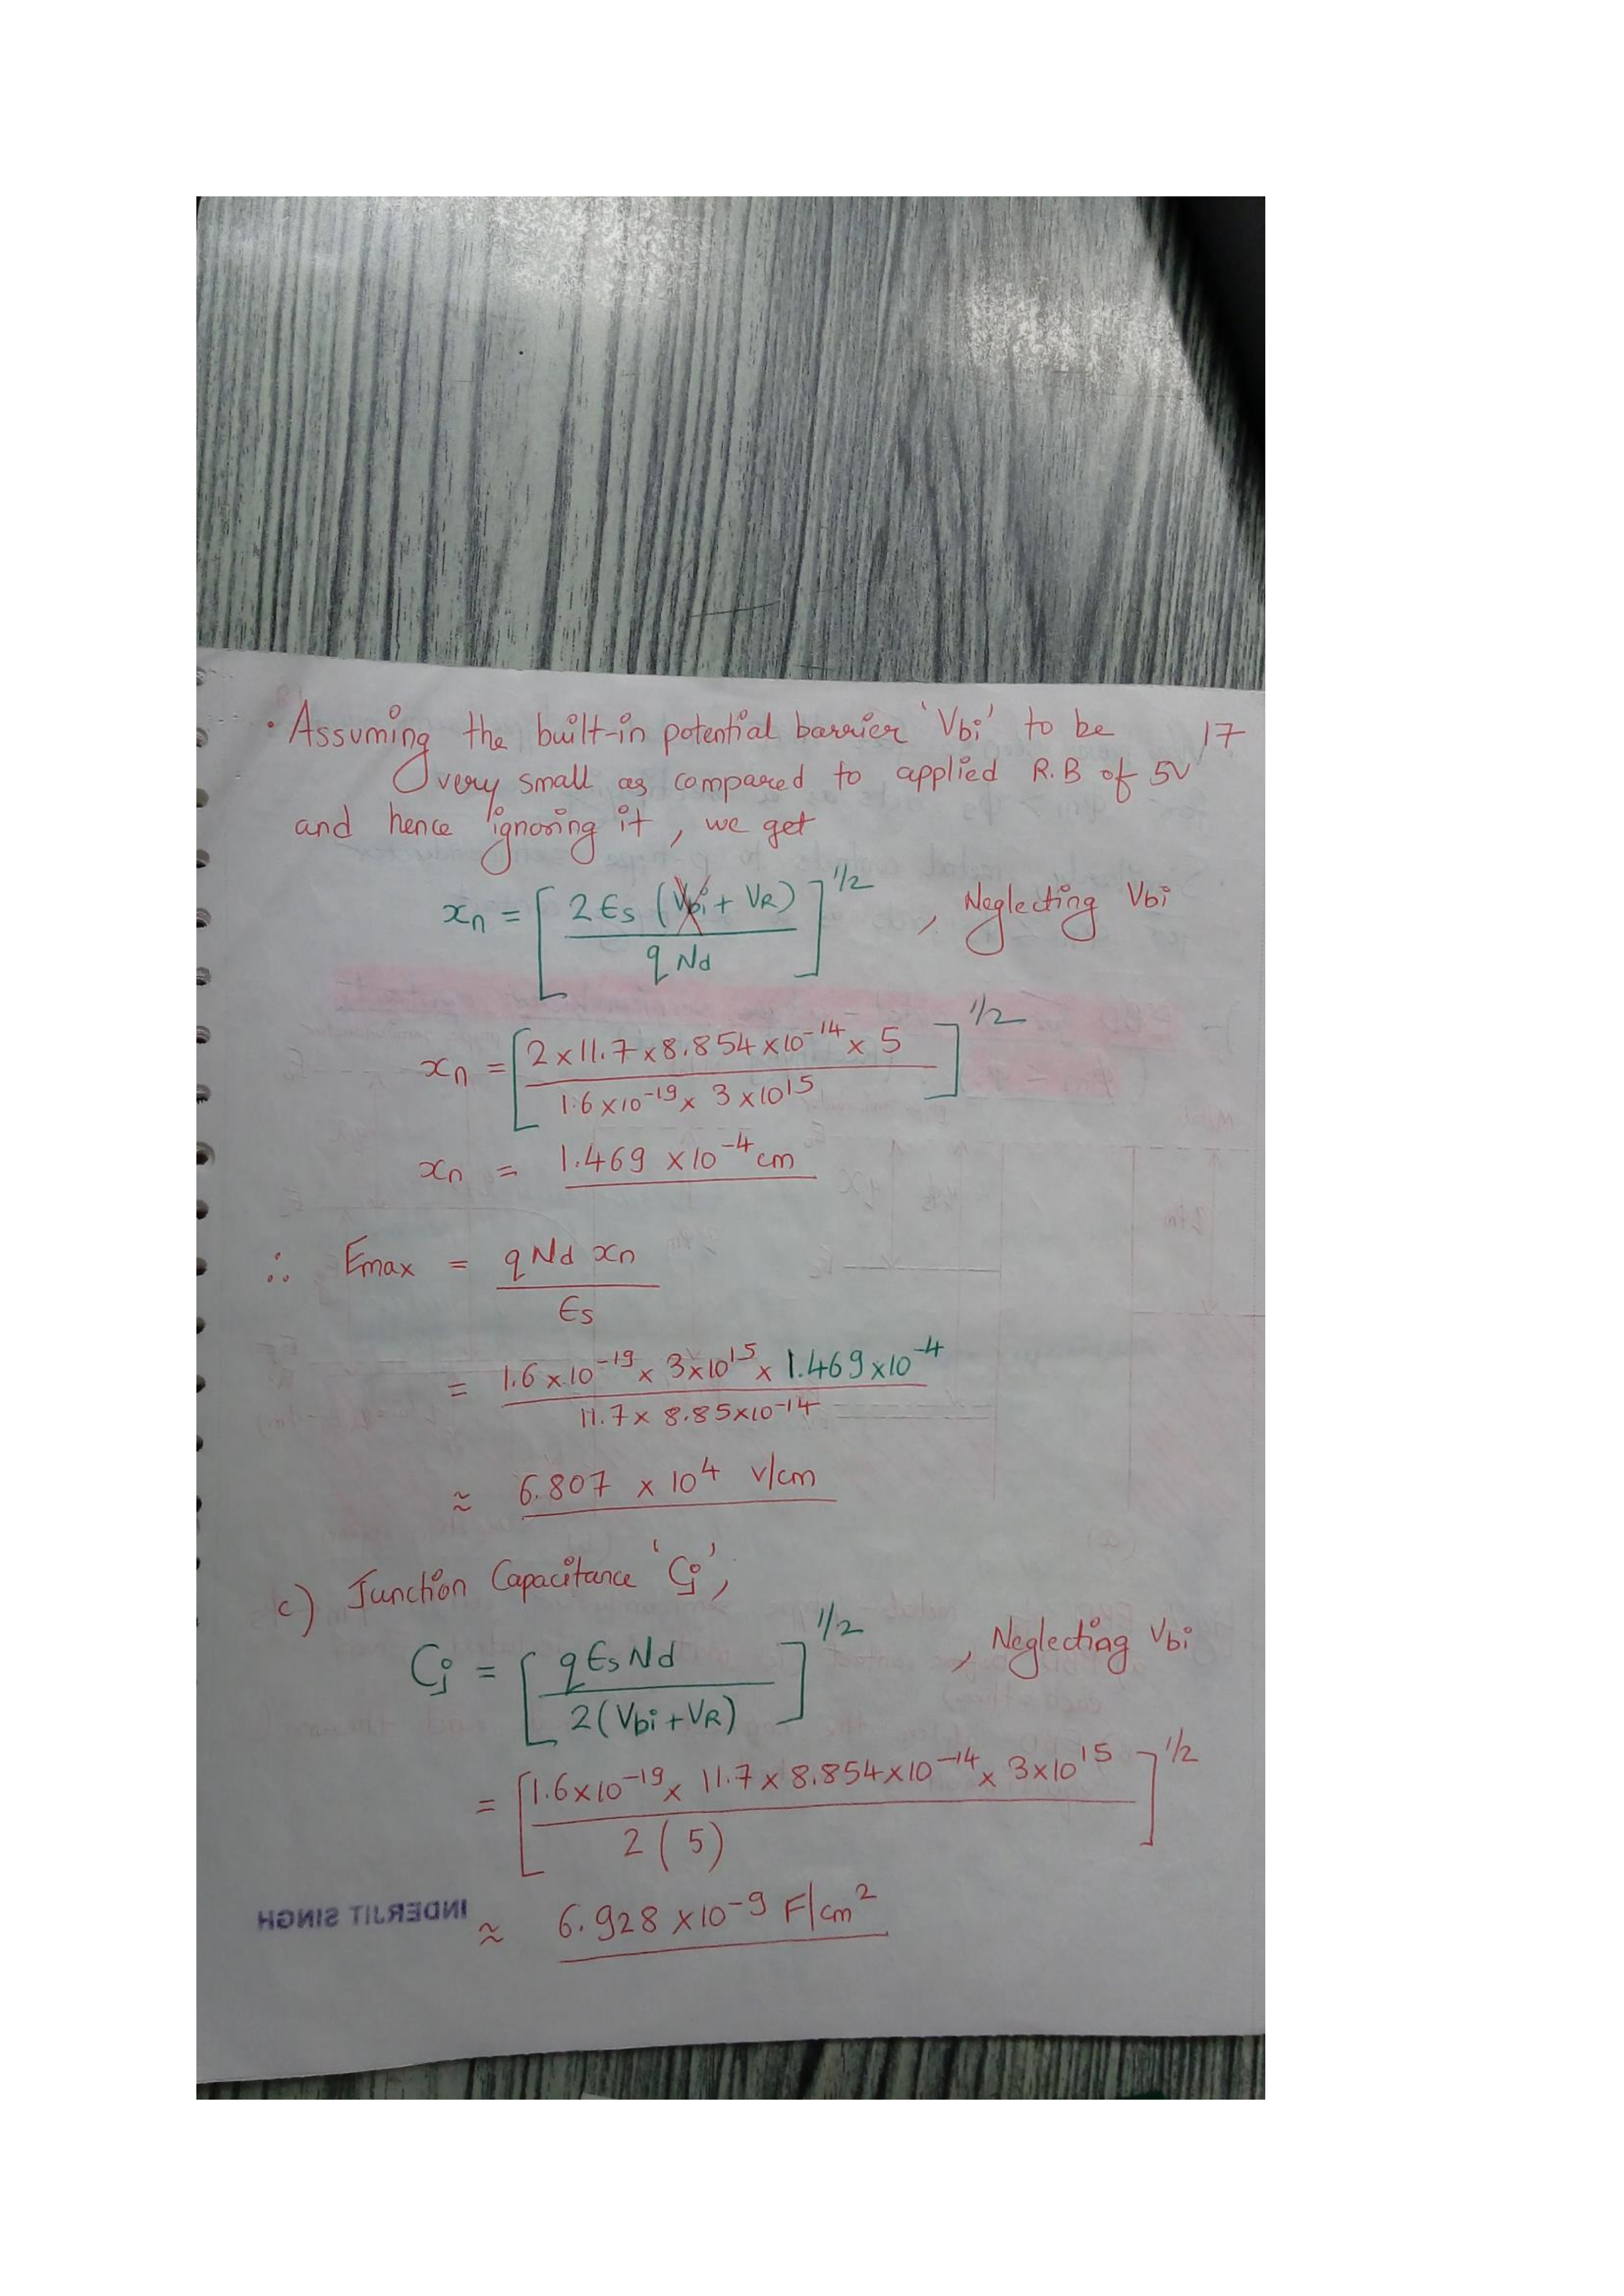 • Assuming the built-in potential barrier 'Vbi' to be 17
very small as compared to applied R.B of 5V
and hence ignoring it, we get
xn = [2 Es (Vbi + VR) / q Nd]^1/2 , Neglecting Vbi
xn = [2 x 11.7 x 8.854 x 10^-14 x 5 / 1.6 x 10^-19 x 3 x 10^15]^1/2
xn = 1.469 x 10^-4 cm
∴ Emax = q Nd xn / Es
= 1.6 x 10^-19 x 3 x 10^15 x 1.469 x 10^-4 / 11.7 x 8.85 x 10^-14
≈ 6.807 x 10^4 V/cm
c) Junction Capacitance 'Cj',
Cj = [q Es Nd / 2 (Vbi + VR)]^1/2 , Neglecting Vbi
= [1.6 x 10^-19 x 11.7 x 8.854 x 10^-14 x 3 x 10^15 / 2 (5)]^1/2
≈ 6.928 x 10^-9 F/cm^2
INDERJIT SINGH